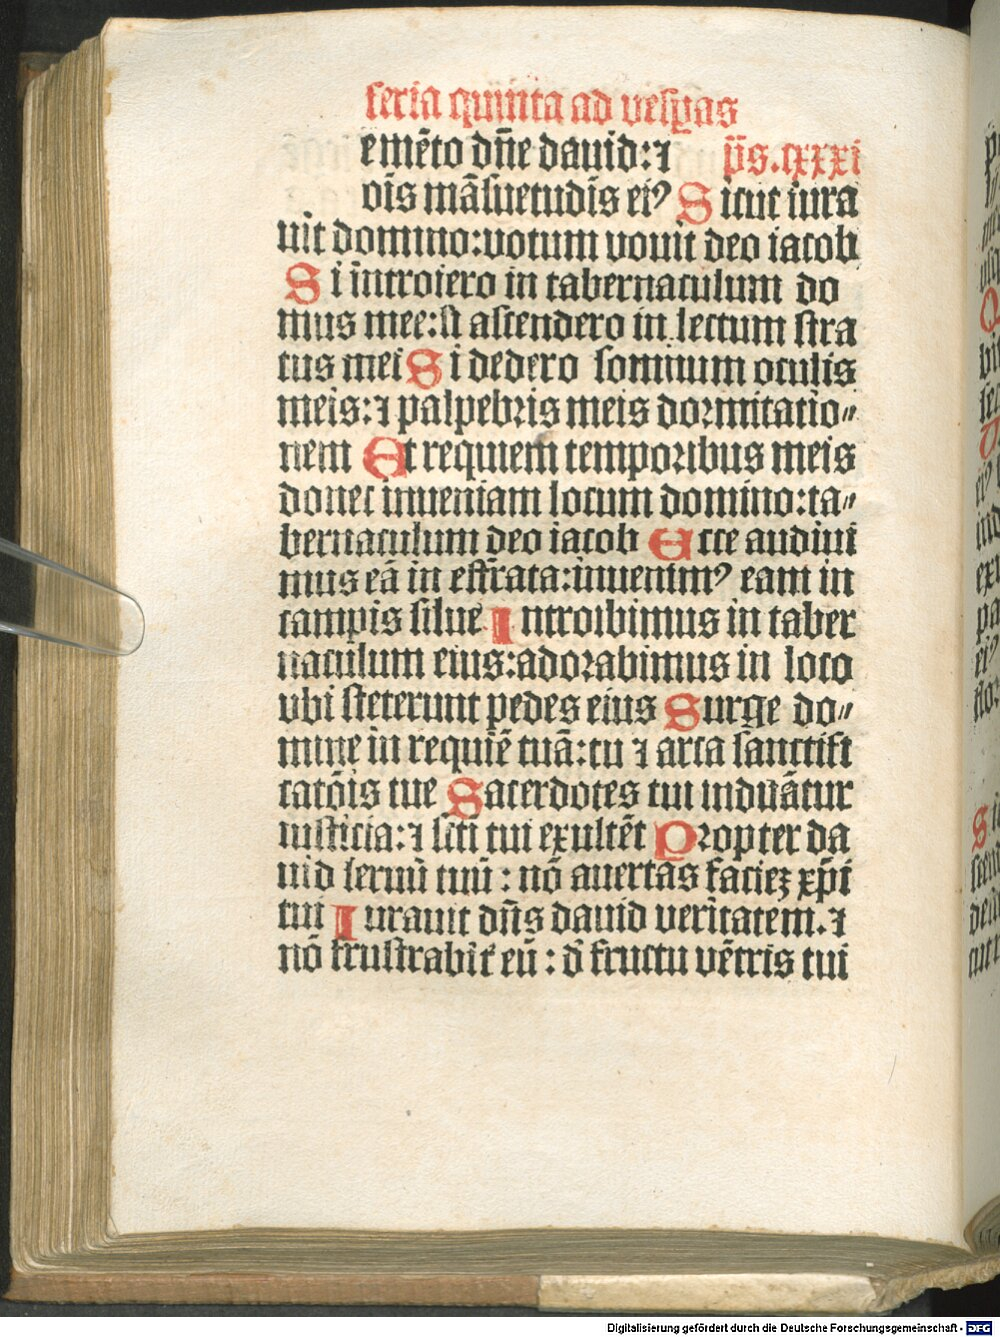 feria quinta ad vesꝑas
emẽto dñe dauid:⁊ p̃s.cxxxi
oĩs mãsuetudis eiꝰ Sicut iura
uit domino:uotum vouit deo iacob
Si introiero in tabernaculum do
mus mee:si ascendero in lectum stra
tus mei Si dedero somnum oculis
meis:⁊ palpebris meis dormitatio⸗
nem Et requiem temporibus meis
donec inueniam locum domino:ta⸗
bernaculum deo iacob Ecce audiui
mus eã in effrata:inuenimꝰ eam in
campis silue Introibimus in taber
naculum eius:adorabimus in loco
ubi steterunt pedes eius Surge do⸗
mine in requiẽ tuã:tu ⁊ arca sanctifi
catõis tue Sacerdotes tui induãtur
iusticia:⁊ scti tui exultẽt Propter da
uid seruũ tuũ : nõ auertas faciez xp̃i
tui Iurauit dñs dauid veritatem.⁊
nõ frustrabit̃ eũ : d̃ fructu vẽtris tui
Digitalisierung gefördert durch die Deutsche Forschungsgemeinschaft - DFG